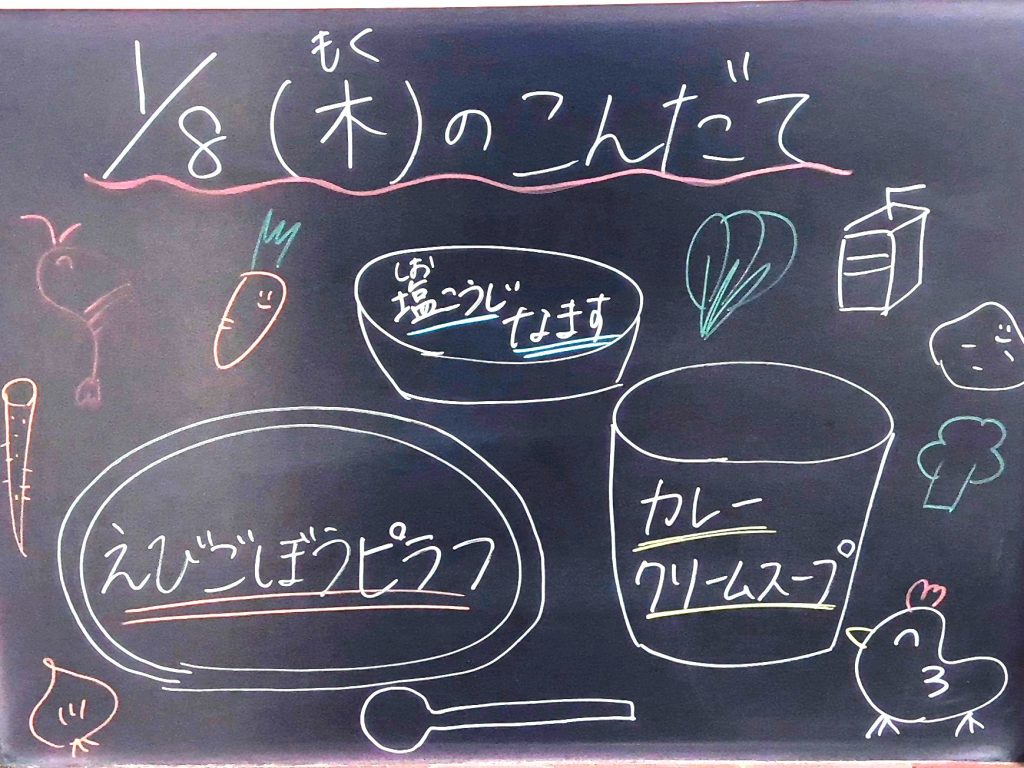 もく
1/8(木)のこんだて
しお
塩こうじ
なます
えびごぼうピラフ
カレー
クリームスープ